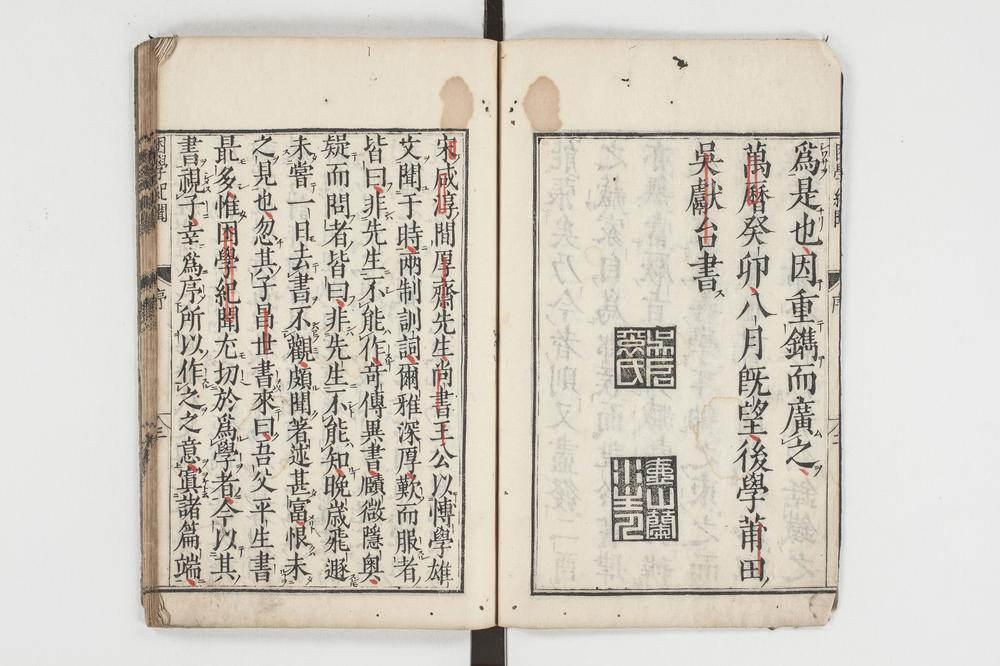 爲是也因重鐫而廣之
萬曆癸卯八月既望後學莆田
吳獻台書
困學紀聞
序
宋咸淳間厚齋先生尚書王公以博學雄
文聞于時兩制訓詞爾雅深厚歎而服者
皆曰非先生不能作奇傳異書隱微隱奧
疑而問者皆曰非先生不能知晚歲飛遯
未嘗一日去書不觀頗聞著述甚富恨未
之見也忽其子昌世書來曰吾父平生書
最多惟困學紀聞尤切於爲學者今以其
書視子幸爲序所以作之之意寘諸篇端
困學紀聞
序